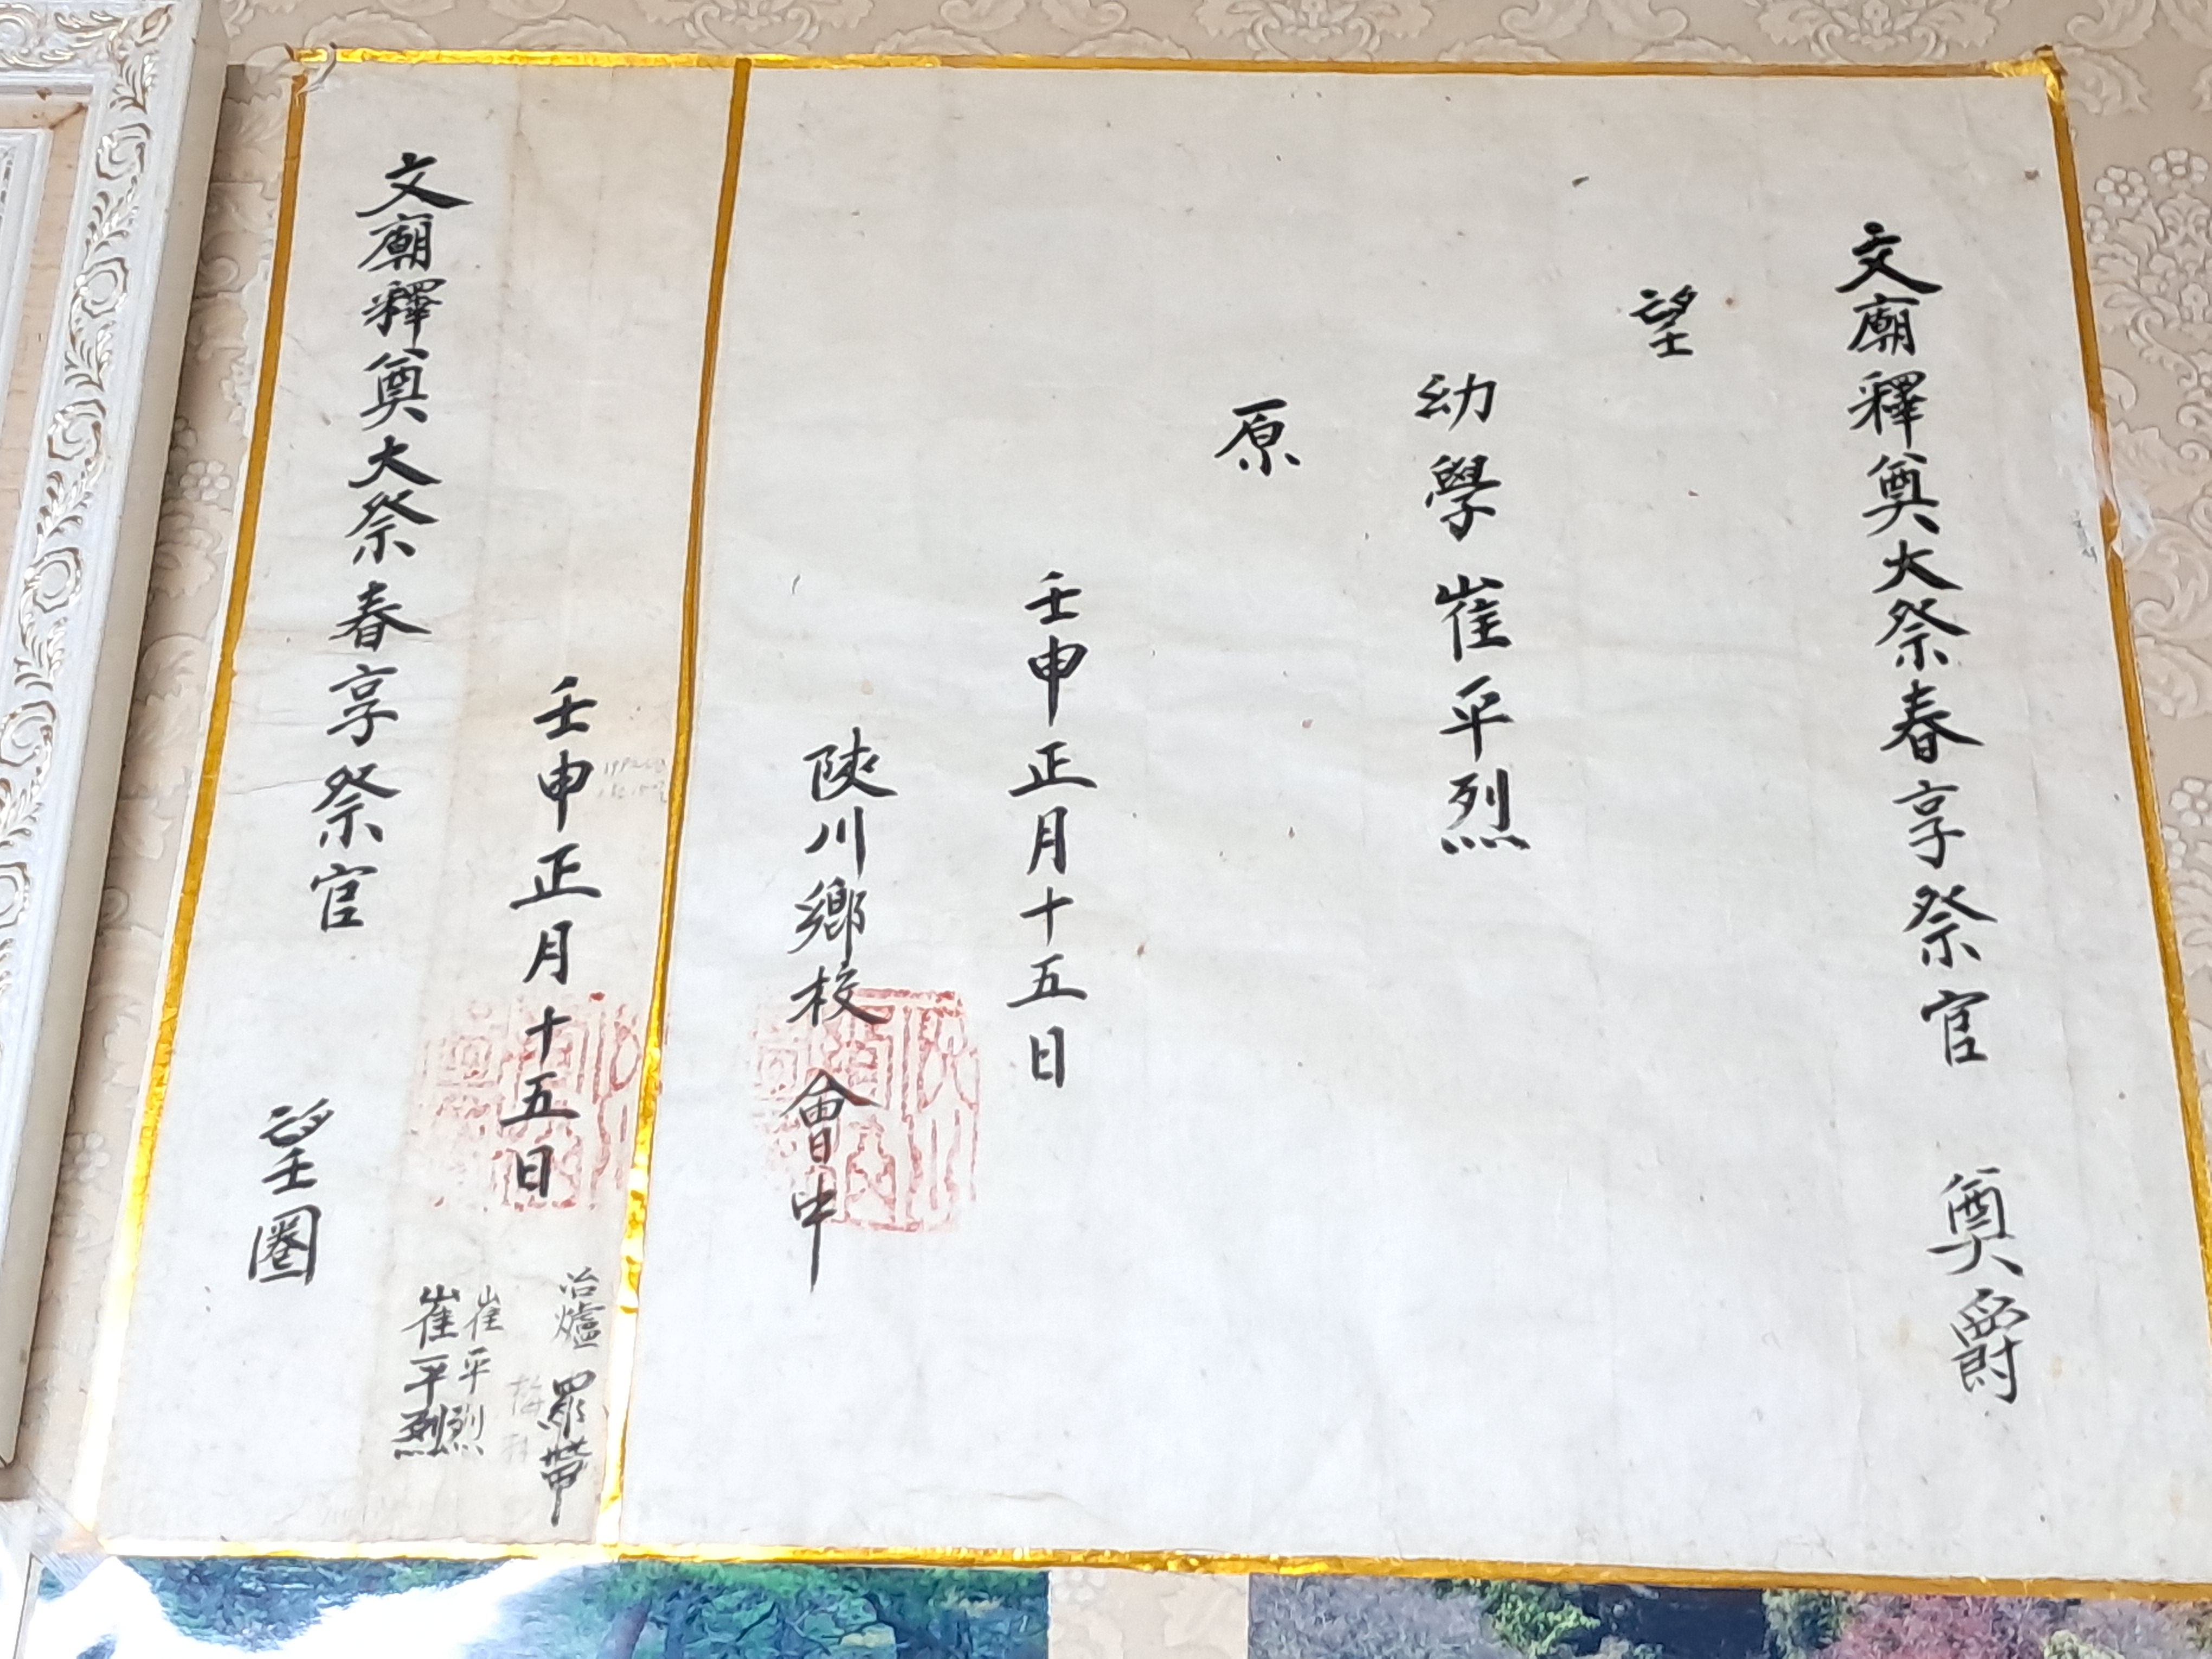 文廟釋奠大祭春享祭官 奠爵
望
幼學崔平烈
原
壬申正月十五日
陜川鄉校 會中
壬申正月十五日
冶爐 羅帶
崔平烈
崔平烈
文廟釋奠大祭春享祭官 望圈